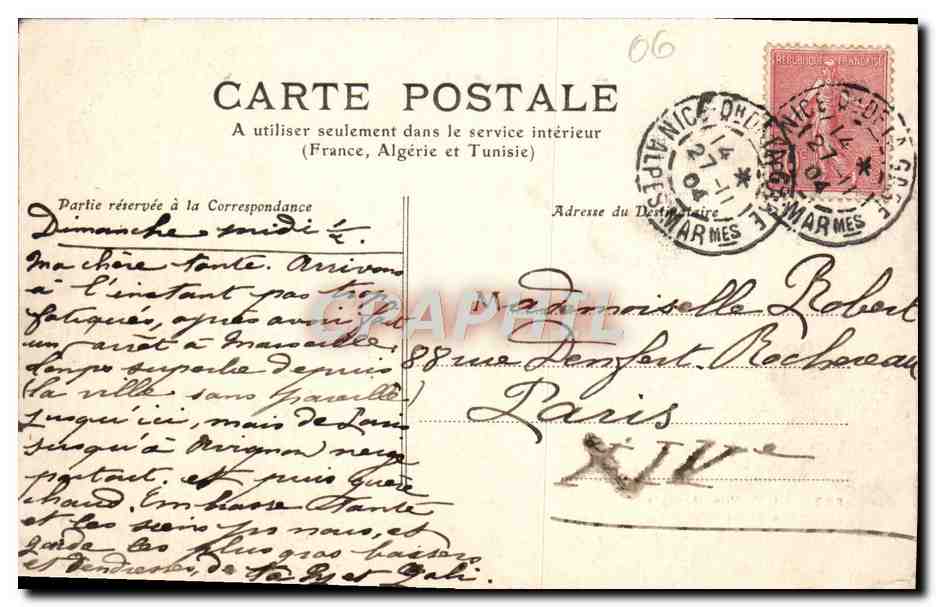 06
RÉPUBLIQUE FRANÇAISE
CARTE POSTALE
A utiliser seulement dans le service intérieur
(France, Algérie et Tunisie)
NICE
14
27-11
04
ALPES MARMES
NICE Der DE LA GARE
14
27-11
04
MARMES
Partie réservée à la Correspondance
Adresse du Destinataire
Dimanche midi 1/2.
Ma chère tante. Arrivons
à l'instant pas trop
fatigués, après avoir fait
un arrêt à Marseille,
temps superbe depuis
(la ville sans pareille)
jusqu'ici, mais de
jusqu'à Avignon neige
partout. et puis guère
chaud. Embrasse Tante
et les siens pr nous, et
garde les plus gros baisers
et tendresses, de ta et
Mademoiselle Robert
88 rue Denfert-Rochereau
Paris
XIVe
CPAPHIL